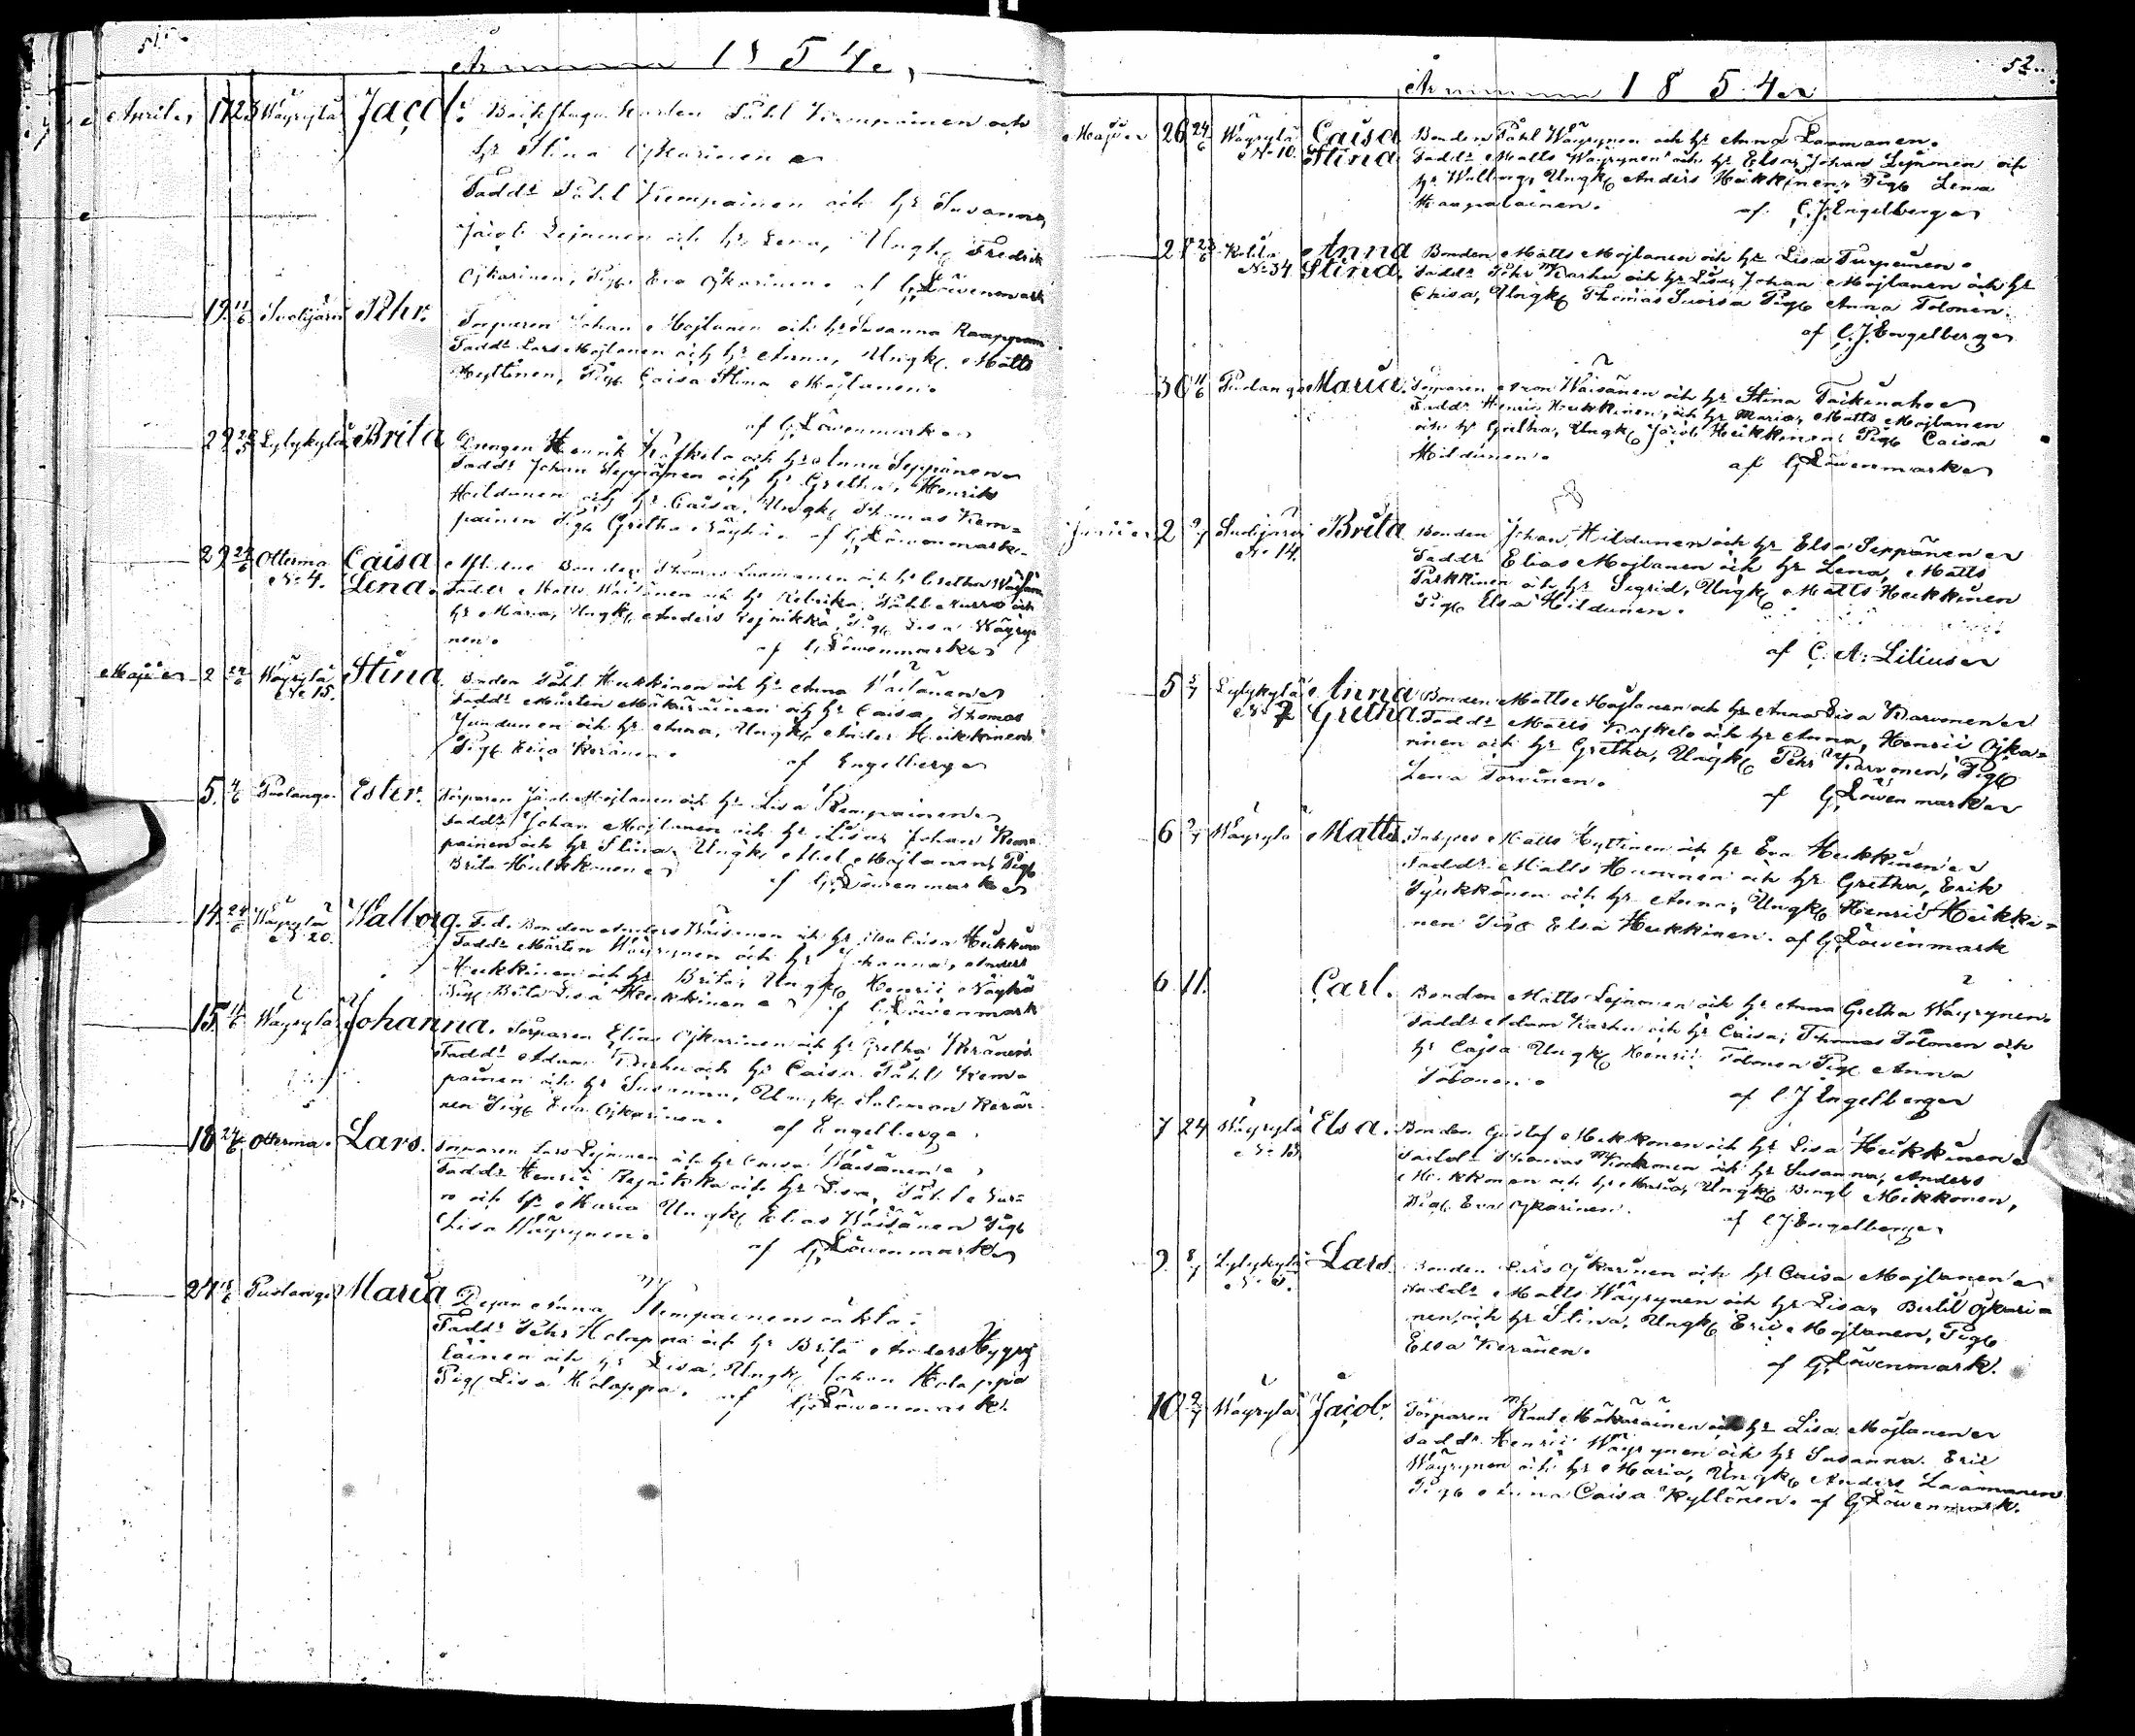 51.
Annum 1854.
Aprill. 17 23 Wäyrylä Jacob. Backstugu karlen Påhl Kempainen och
hr Stina Ojkarinen
Faddr Påhl Kempainen och hr Susanna,
Jacob Lejnonen och hr Lena, Ungk Fredrik
Ojkarinen, Pig. Eva Ojkarinen. af G. Löwenmark
19. 11/6 Suolijärvi Pehr. Torparen Johan Mojlanen och hr Susanna
Faddr Lars Mojlanen och hr Anna, Ungk. Matts
Hyttinen, Pig. Caisa Stina Mojlanen.
af G. Löwenmark
29 Lylykylä Brita Drengen Henrik Kofkelo och hr Anna Seppänen
Faddr Johan Seppänen och hr Gretha, Henrik
Hildunen och hr Caisa, Ungk Thomas Kem=
painen Pig. Gretha af G. Löwenmark
29 24/6 Otterma Caisa Aflidne Bonden Thomas Laamanen och hr Gretha
No 4. Lena. Fadder Matts Waisänen och hr Rebecka, Påhl och
hr Maria, Ungk. Anders Rejnikka, Pig. Lisa Wäyry
nen. af G. Löwenmark
Majii 2 24/6 Wäyrylä Stina Bonden Påhl Heikkinen och hr Anna Waisänen
No 15. Faddr Mårten Mäkäräinen och hr Caisa, Thomas
Jundunen och hr Anna, Ungk Ander Heikkinen
Pig. Erica Keränen. af Engelberg
5. 4/6 Puolango Ester. Torparen Jacob Mojlanen och hr Lisa Kempainen
Faddr Johan Mojlanen och hr Lisa, Johan Kem=
painen och hr Stina, Ungk. Abel Mojlanen, Pig.
Brita Heikkinen af G. Löwenmark
14. 24/6 Wäyrylä Walborg. F.d. Bonden Anders Waisänen och hr Caisa Heikkinen
No 20. Faddr Mårten Wäyrynen och hr Johanna, Anders
Heikkinen och hr Brita, Ungk Henric
Pig. Brita Lisa Heikkinen af G. Löwenmark
15. 11/6 Wäyrylä Johanna. Torparen Elias Ojkarinen och hr Gretha Keränen.
Faddr Adam Karhu och hr Caisa Påhl Kem=
painen och hr Susanna, Ungk. Salomon Kerä
nen Pig. Eva Ojkarinen. af Engelberg.
18 24/6 Otterma. Lars. Torparen Lars Lejnonen och hr Caisa Waisänen
Faddr Henric Rejnikka och hr Lisa, Påhl
och hr Maria Ungk Elias Waisänen Pig.
Lisa Wäyrynen. af G. Löwenmark
27 Puolango Maria Pigan Anna Kempainens oäkta:
Faddr Pehr Holappa och hr Brita Anders
läinen och hr Lisa, Ungk Johan Holappa
Pig. Lisa Holappa. af G. Löwenmark.
52.
Annum 1854
Majii 26 24/6 Wäyrylä Caisa Bonden Påhl Wäyrynen och hr Anna Laamanen.
No 10. Stina. Faddr Matts Wäyrynen och hr Elsa, Johan Lejnonen och
hr Walborg, Ungk Anders Heikkinen, Pig. Lena
Haapalainen. af. C.J. Engelberg
28 Anna Bonden Matts Mojlanen och hr Lisa Turpeinen.
No 34 Stina. Faddr Pehr Karhu och hr Lisa, Johan Mojlanen och hr
Caisa, Ungk Thomas Suorsa Pig. Anna Tolonen.
af C.J. Engelberg
30 11/6 Puolango Maria. Torparen Aron Waisänen och hr Stina Taikinaho
Faddr Henric Heikkinen och hr Maria, Matts Mojlanen
och hr Gretha, Ungk Jacob Heikkinen Pig. Caisa
Hildunen. af G. Löwenmark
Junii 2 2/7 Suolijärvi Brita Bonden Johan Hildunen och hr Elsa Seppänen
No 14. Faddr Elias Mojlanen och hr Lena, Matts
Parkkinen och hr Sigrid, Ungk Matts Heikkinen
Pig. Elsa Hildunen.
af C. A. Lilius
5 5/7 Lylykylä Anna Bonden Matts Mojlanen och hr Anna Lisa Karvonen
No 7 Gretha. Faddr Matts Kofkelo och hr Anna, Henric Ojka=
rinen och hr Gretha, Ungk Pehr Karvonen, Pig.
Lena Torvinen. af G. Löwenmark
6 2/7 Wäyrylä Matts. Inhyses Matts Hyttinen och hr Eva Heikkinen
Faddr Matts Huovinen och hr Gretha, Erik
Pyykkönen och hr Anna, Ungk Henric Heikki=
nen Pig. Elsa Heikkinen. af G. Löwenmark
6 11. Carl. Bonden Matts Lejnonen och hr Anna Gretha Wäyrynen.
Faddr Adam Karhu och hr Caisa, Thomas Tolonen och
hr Cajsa Ungk Henric Tolonen Pig. Anna
Tolonen. af C.J. Engelberg
7 24 Wäyrylä Elsa. Bonden Gustaf Mikkonen och hr Lisa Heikkinen
Faddr Thomas och hr Susanna, Anders
Mikkonen och hr Maria, Ungk Bengt Mikkonen,
Pig. Eva Ojkarinen. af C.J. Engelberg
9. 8/7 Lylykylä Lars. Bonden Lars Ojkarinen och hr Caisa Mojlanen
Faddr Matts Wäyrynen och hr Lisa, Bertil Ojkari=
nen, och hr Stina, Ungk Eric Mojlanen, Pig.
Elsa Keränen. af G. Löwenmark.
10 9/7 Wäyrylä Jacob. Torparen Knut Mäkäräinen och hr Lisa Mojlanen
Faddr Henric Wäyrynen och hr Susanna. Eric
Wäyrynen och hr Maria, Ungk Anders Laamanen
Pig. Anna Caisa Kyllönen. af G. Löwenmark.